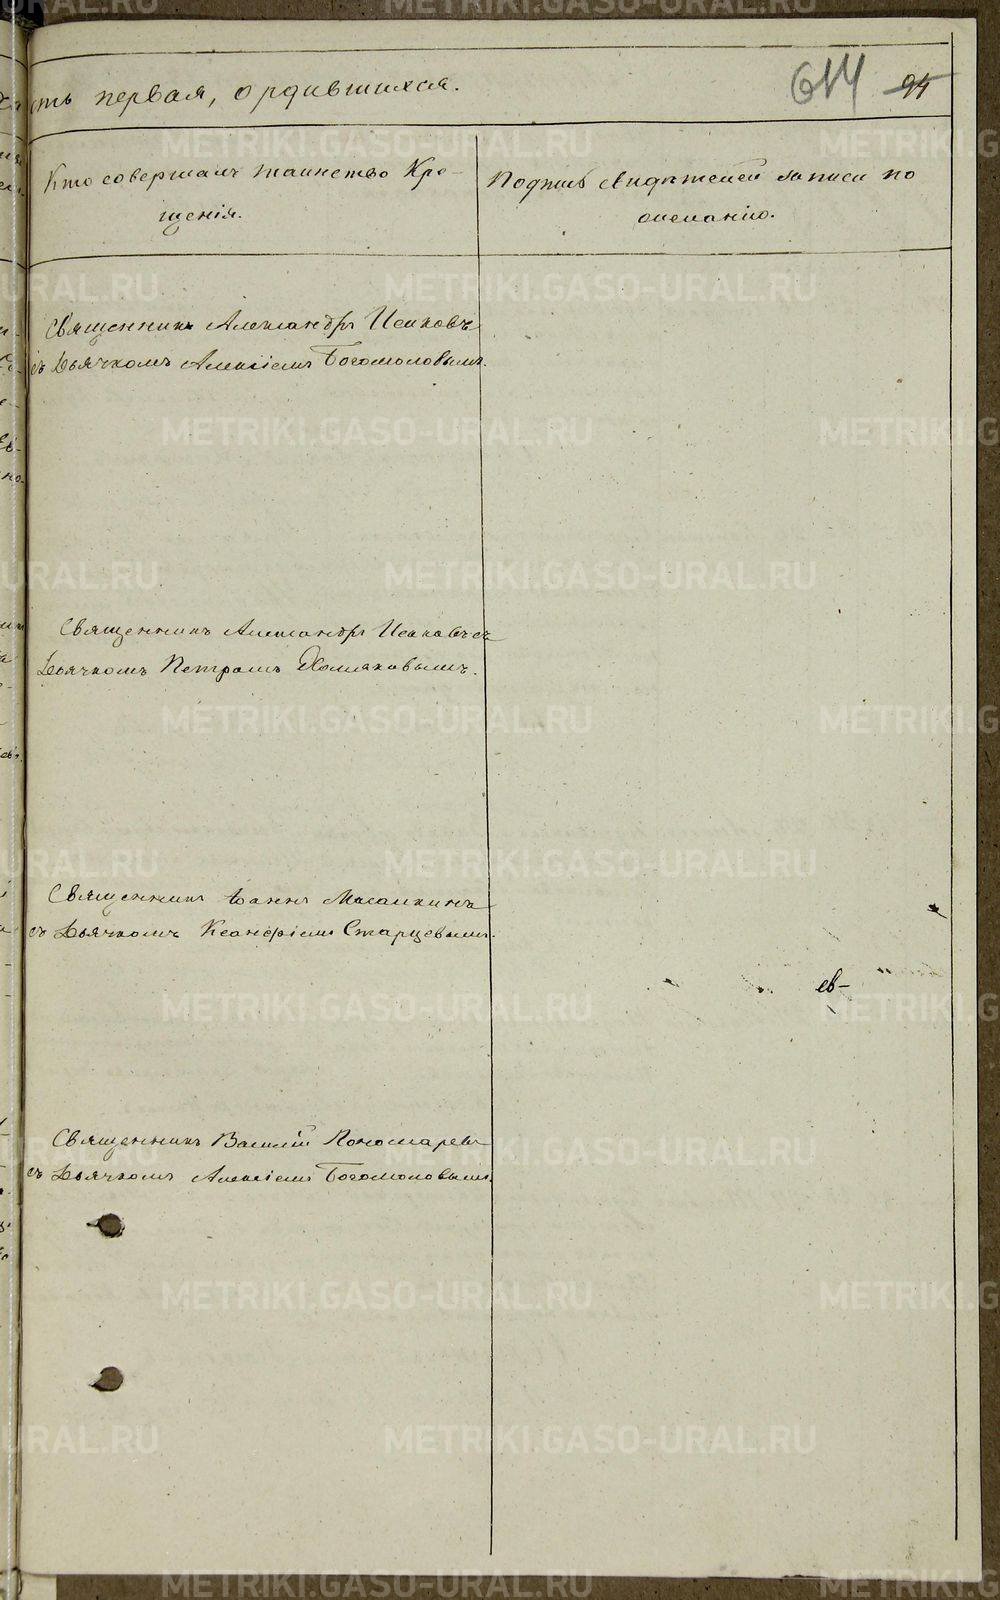 сть первая, о родившихся.
614 94
Кто совершалъ таинство Кре-
щенія.
Подпись свидѣтелей записи по
желанію.
Священникъ Александръ Исаковъ
съ Дьячкомъ Алексіемъ Богомоловымъ.
Священникъ Александръ Исаковъ съ
Дьячкомъ Петромъ Хомяковымъ.
Священникъ Іоаннъ
съ Дьячкомъ Ксанфіемъ Старцевымъ.
ев-
Священникъ Василій Пономаревъ
съ Дьячкомъ Алексіемъ Богомоловымъ.
METRIKI.GASO-URAL.RU